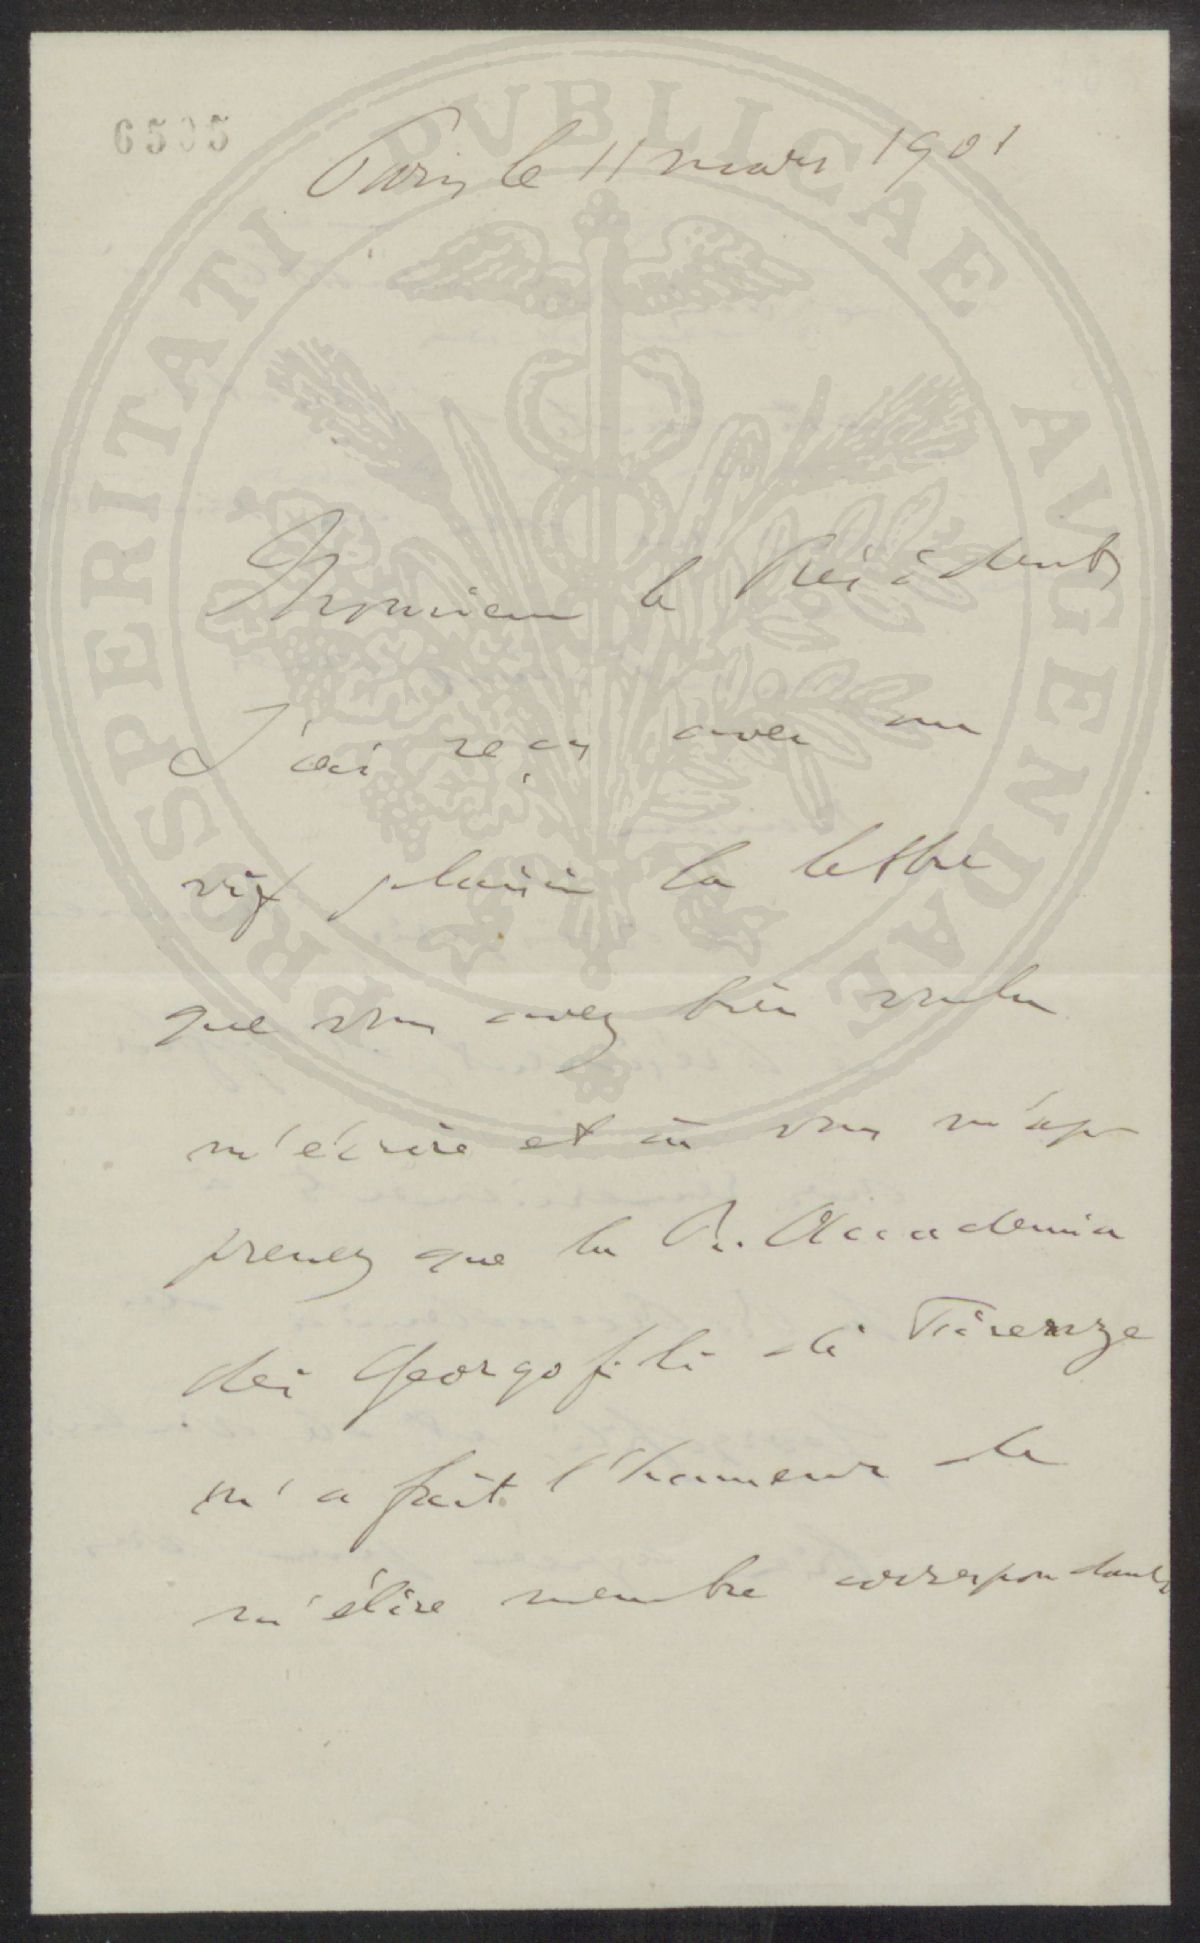 6505
Paris le 11 mars 1901
PROSPERITATI PUBLICAE AVGENDAE
Monsieur le Président
J'ai reçu avec un
vif plaisir la lettre
que vous avez bien voulu
m'écrire et où vous m'ap
prenez que la R. Accademia
dei Georgofili di Firenze
m'a fait l'honneur de
m'élire membre correspondant